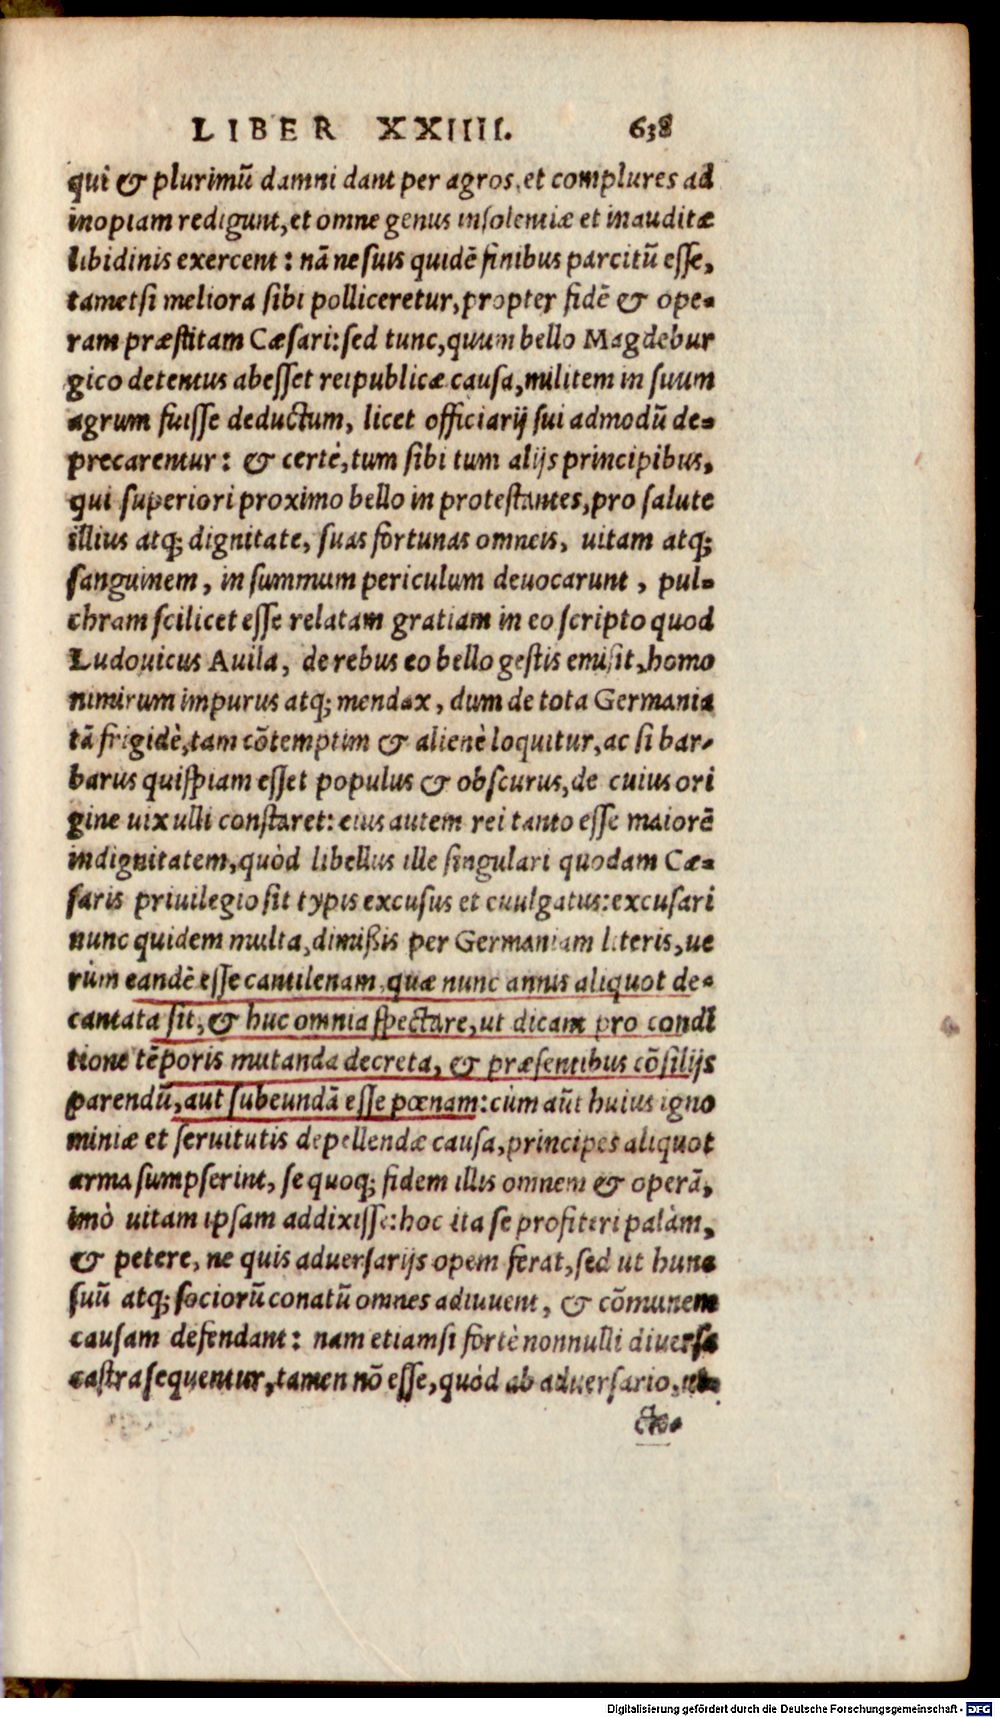 LIBER XXIIII. 638
qui & plurimū damni dant per agros, et complures ad
inopiam redigunt, et omne genus insolentiæ et inauditæ
libidinis exercent: nā ne suis quidē finibus parcitū esse,
tametsi meliora sibi polliceretur, propter fidē & ope-
ram præstitam Cæsari: sed tunc, quum bello Magdebur
gico detentus abesset reipublicæ causa, militem in suum
agrum fuisse deductum, licet officiarij sui admodū de-
precarentur: & certè, tum sibi tum alijs principibus,
qui superiori proximo bello in protestantes, pro salute
illius atq; dignitate, suas fortunas omneis, uitam atq;
sanguinem, in summum periculum deuocarunt, pul-
chram scilicet esse relatam gratiam in eo scripto quod
Ludouicus Auila, de rebus eo bello gestis emisit, homo
nimirum impurus atq; mendax, dum de tota Germania
tā frigidè, tam cōtemptim & alienè loquitur, ac si bar-
barus quispiam esset populus & obscurus, de cuius ori
gine uix ulli constaret: eius autem rei tanto esse maiorē
indignitatem, quòd libellus ille singulari quodam Cæ-
saris priuilegio sit typis excusus et euulgatus: excusari
nunc quidem multa, dimißis per Germaniam literis, ue
rùm eandē esse cantilenam, quæ nunc annis aliquot de-
cantata sit, & huc omnia spectare, ut dicam pro condi
tione tēporis mutanda decreta, & præsentibus cōsilijs
parendū, aut subeundā esse pœnam: cùm aūt huius igno
miniæ et seruitutis depellendæ causa, principes aliquot
arma sumpserint, se quoq; fidem illis omnem & operā,
imò uitam ipsam addixisse: hoc ita se profiteri palàm,
& petere, ne quis aduersarijs opem ferat, sed ut hunc
suū atq; sociorū conatū omnes adiuuent, & cōmunem
causam defendant: nam etiamsi fortè nonnulli diuersa
castra sequentur, tamen nō esse, quòd ab aduersario,
Digitalisierung gefördert durch die Deutsche Forschungsgemeinschaft - DFG